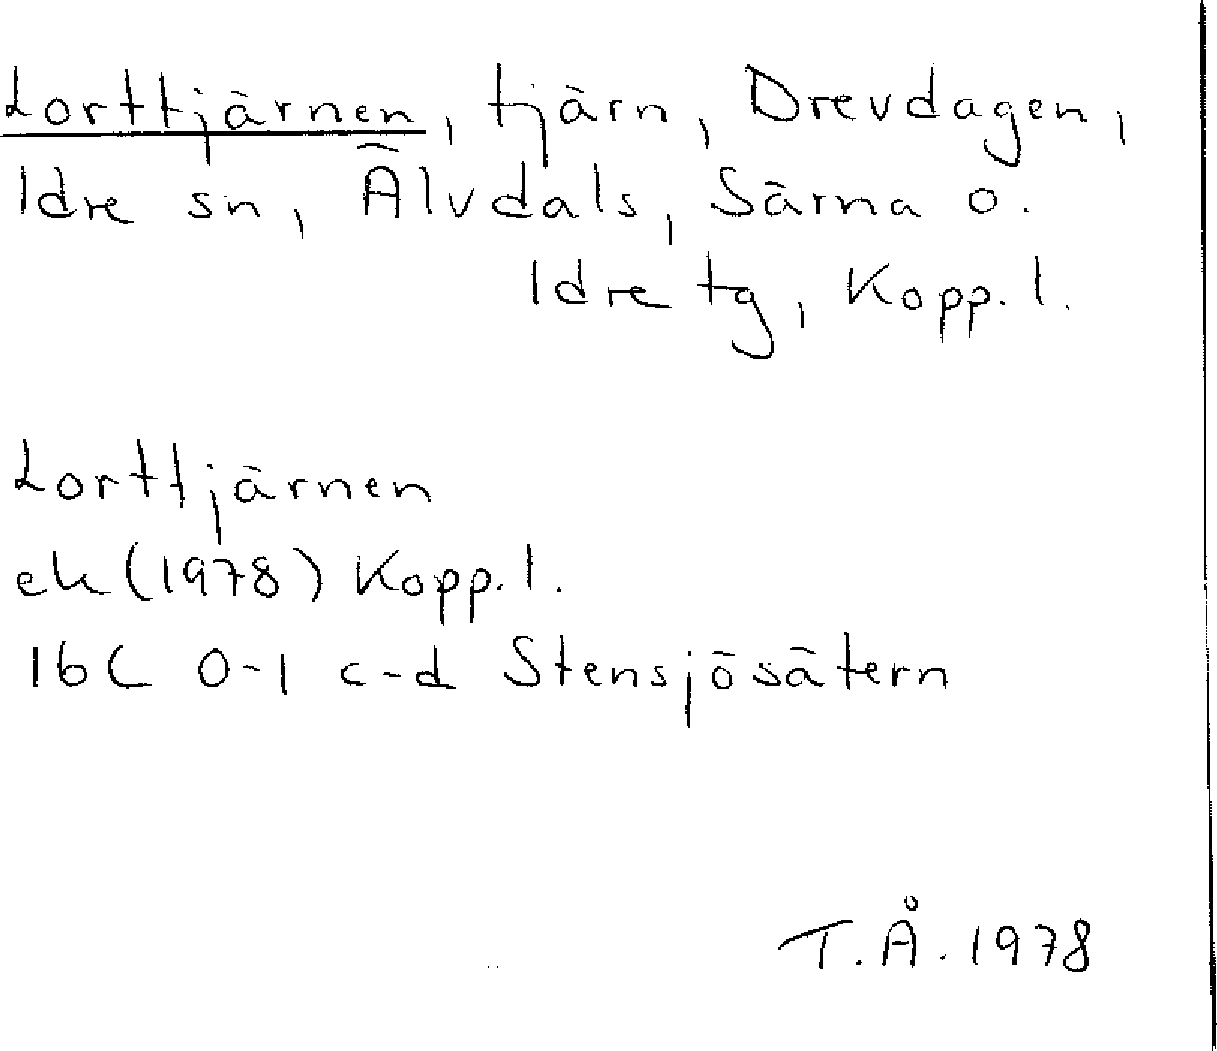 Lorttjärnen, tjärn, Drevdagen,
Idre sn, Älvdals, Särna o.
Idre tg, Kopp. l.
Lorttjärnen
ek (1978) Kopp. l.
16C 0-1 c-d Stensjösätern
T.Å. 1978